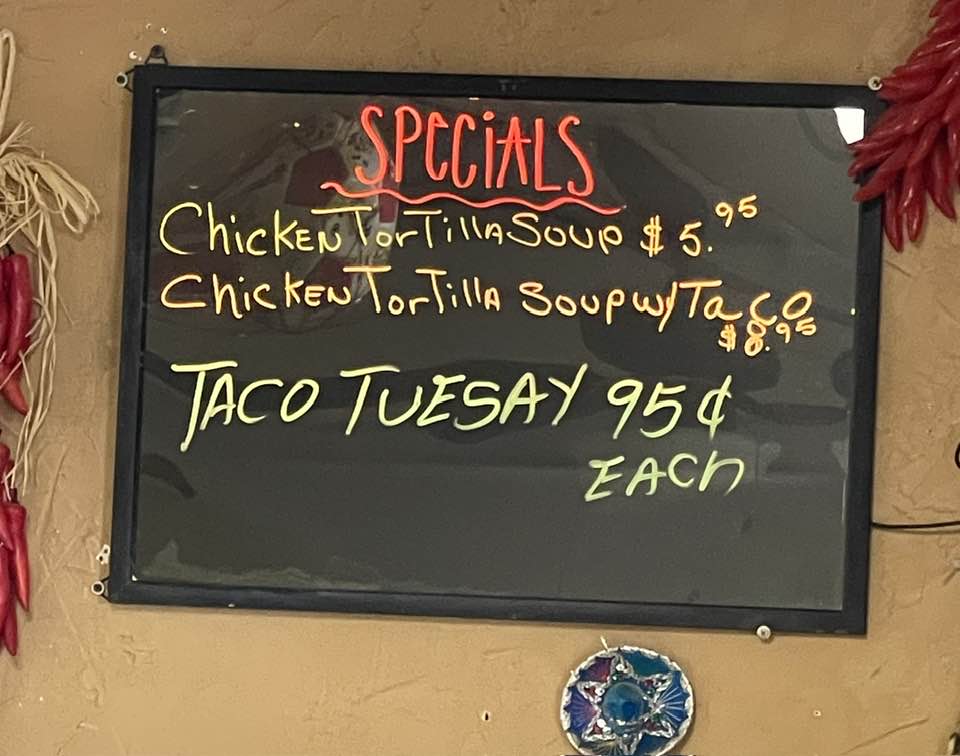 SPECiALS
ChickEN TorTillA SOUP $5.95
ChickEN TorTillA SOUP w/ TaCO
$8.95
TACO TUESAY 95¢
EACh